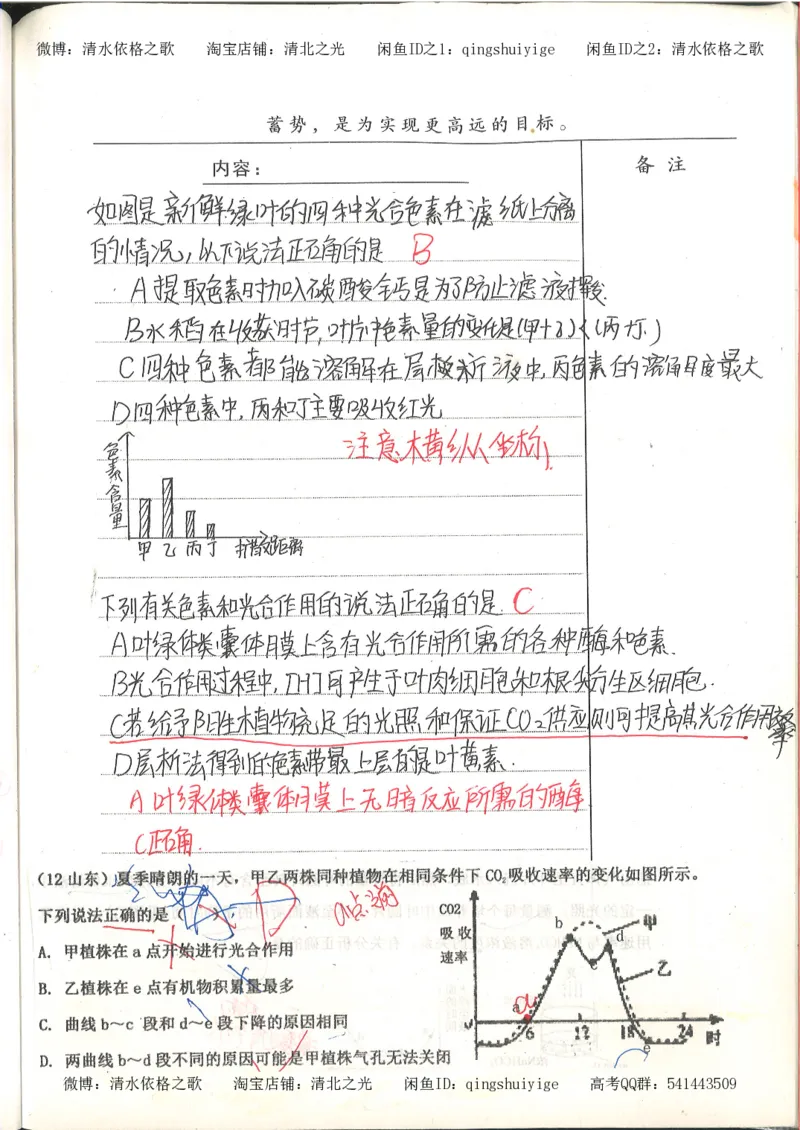 微博：清水依格之歌 淘宝店铺：清北之光 闲鱼ID之1：qingshuiyige 闲鱼ID之2：清水依格之歌
蓄势，是为实现更高远的目标。
内容： 备 注
如图是新鲜绿叶的四种光合色素在滤纸上分离
的情况，以下说法正确的是 B
A 提取色素时加入碳酸钙是为了防止滤液挥发
B 水稻在收获时节，叶片中色素量的变化是(甲+乙)<(丙+丁)
C 四种色素都能溶解在层析液中，丙色素的溶解度最大
D 四种色素中，丙和丁主要吸收红光
注意横纵坐标！
色素含量
甲 乙 丙 丁 扩散距离
下列有关色素和光合作用的说法正确的是 C
A 叶绿体类囊体膜上含有光合作用所需的各种酶和色素.
B 光合作用过程中，[H]可产生于叶肉细胞和根尖分生区细胞.
C 若给予阴生植物充足的光照和保证CO2供应则可提高其光合作用效率
D 层析法得到的色素带最上层的是叶黄素.
A 叶绿体类囊体膜上无暗反应所需的酶
C 正确.
(12山东) 夏季晴朗的一天，甲乙两株同种植物在相同条件下CO2吸收速率的变化如图所示。
下列说法正确的是
A. 甲植株在a点开始进行光合作用
B. 乙植株在e点有机物积累量最多
C. 曲线b～c段和d～e段下降的原因相同
D. 两曲线b～d段不同的原因可能是甲植株气孔无法关闭
CO2
吸收
速率
b 甲
d
c
乙
a
6 12 18 24 时
e
微博：清水依格之歌 淘宝店铺：清北之光 闲鱼ID：qingshuiyige 高考QQ群：541443509